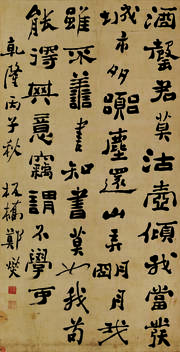 酒罄君莫沽壺傾我當發
城市多囂塵還山弄明月我
雖不善書知書莫如我苟
能得其意竊謂不學可
乾隆丙子秋板橋鄭燮